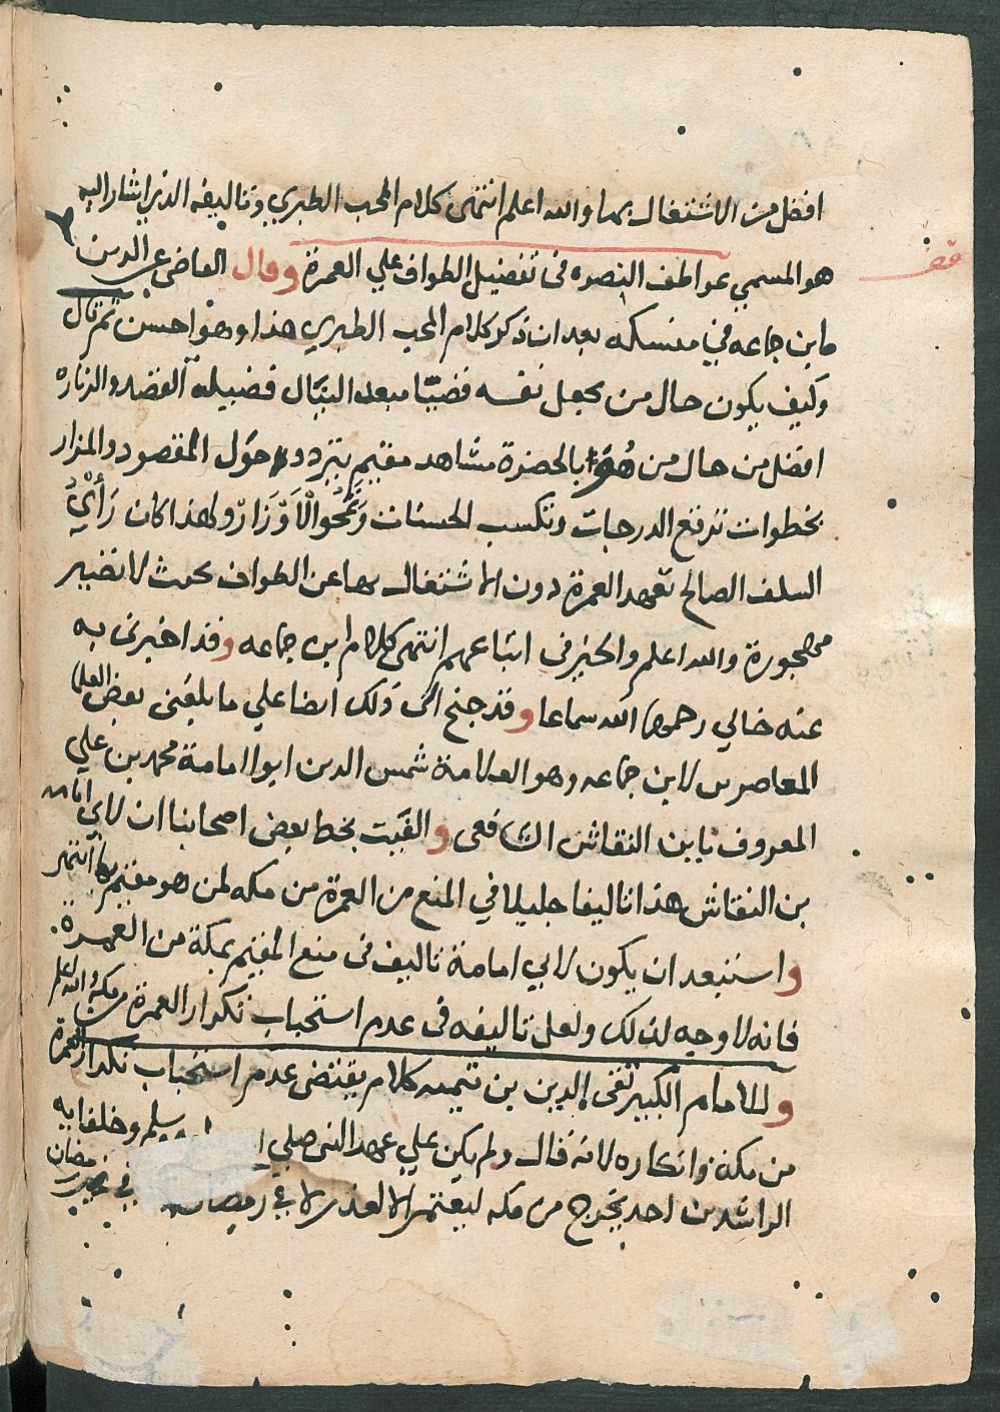 افضل من الاشتغال بها والله اعلم انتهى كلام المحب الطبري وتاليفه الذي اشار اليه
قف
هو المسمي عواطف النصره في تفضيل الطواف علي العمرة وقال القاضي عز الدين
بن جماعه في منسكه بعد ان ذكر كلام المحب الطبري هذا وهو احسن ثم قال
وكيف يكون حال من يجعل نفسه قصيا مبعدا لينال فضيله القصد والزياره
افضل من حال من هو بالحضرة مشاهد مقيم يتردد حول المقصود والمزار
بخطوات ترفع الدرجات وتكسب الحسنات وتمحوا الاوزار ولهذا كان رأي
السلف الصالح تعهد العمرة دون الاشتغال بها عن الطواف بحيث لا تصير
مهجورة والله اعلم والخير في اتباعهم انتهى كلام ابن جماعه وقد اخبرني به
عنه خالي رحمه الله سماعا وقد جنح الى ذلك ايضا علي ما بلغني بعض العلما
المعاصرين لابن جماعه وهو العلامة شمس الدين ابو امامة محمد بن علي
المعروف بابن النقاش الشافعي والفيت بخط بعض اصحابنا ان لابي امامه
بن النقاش هذا تاليفا جليلا في المنع من العمرة من مكه لمن هو مقيم بها انتهى
واستبعد ان يكون لابي امامة تاليف في منع المقيم بمكة من العمرة
فانه لا وجه لذلك ولعل تاليفه في عدم استحباب تكرار العمرة من مكه والله اعلم
وللامام الكبير تقي الدين بن تيميه كلام يقتضي عدم استحباب تكرار العمرة
من مكة وانكاره لانه قال ولم يكن علي عهد النبي صلى وسلم وخلفايه
الراشدين احد يخرج من مكه ليعتمر الا لعذر لا في رمضان في غير رمضان